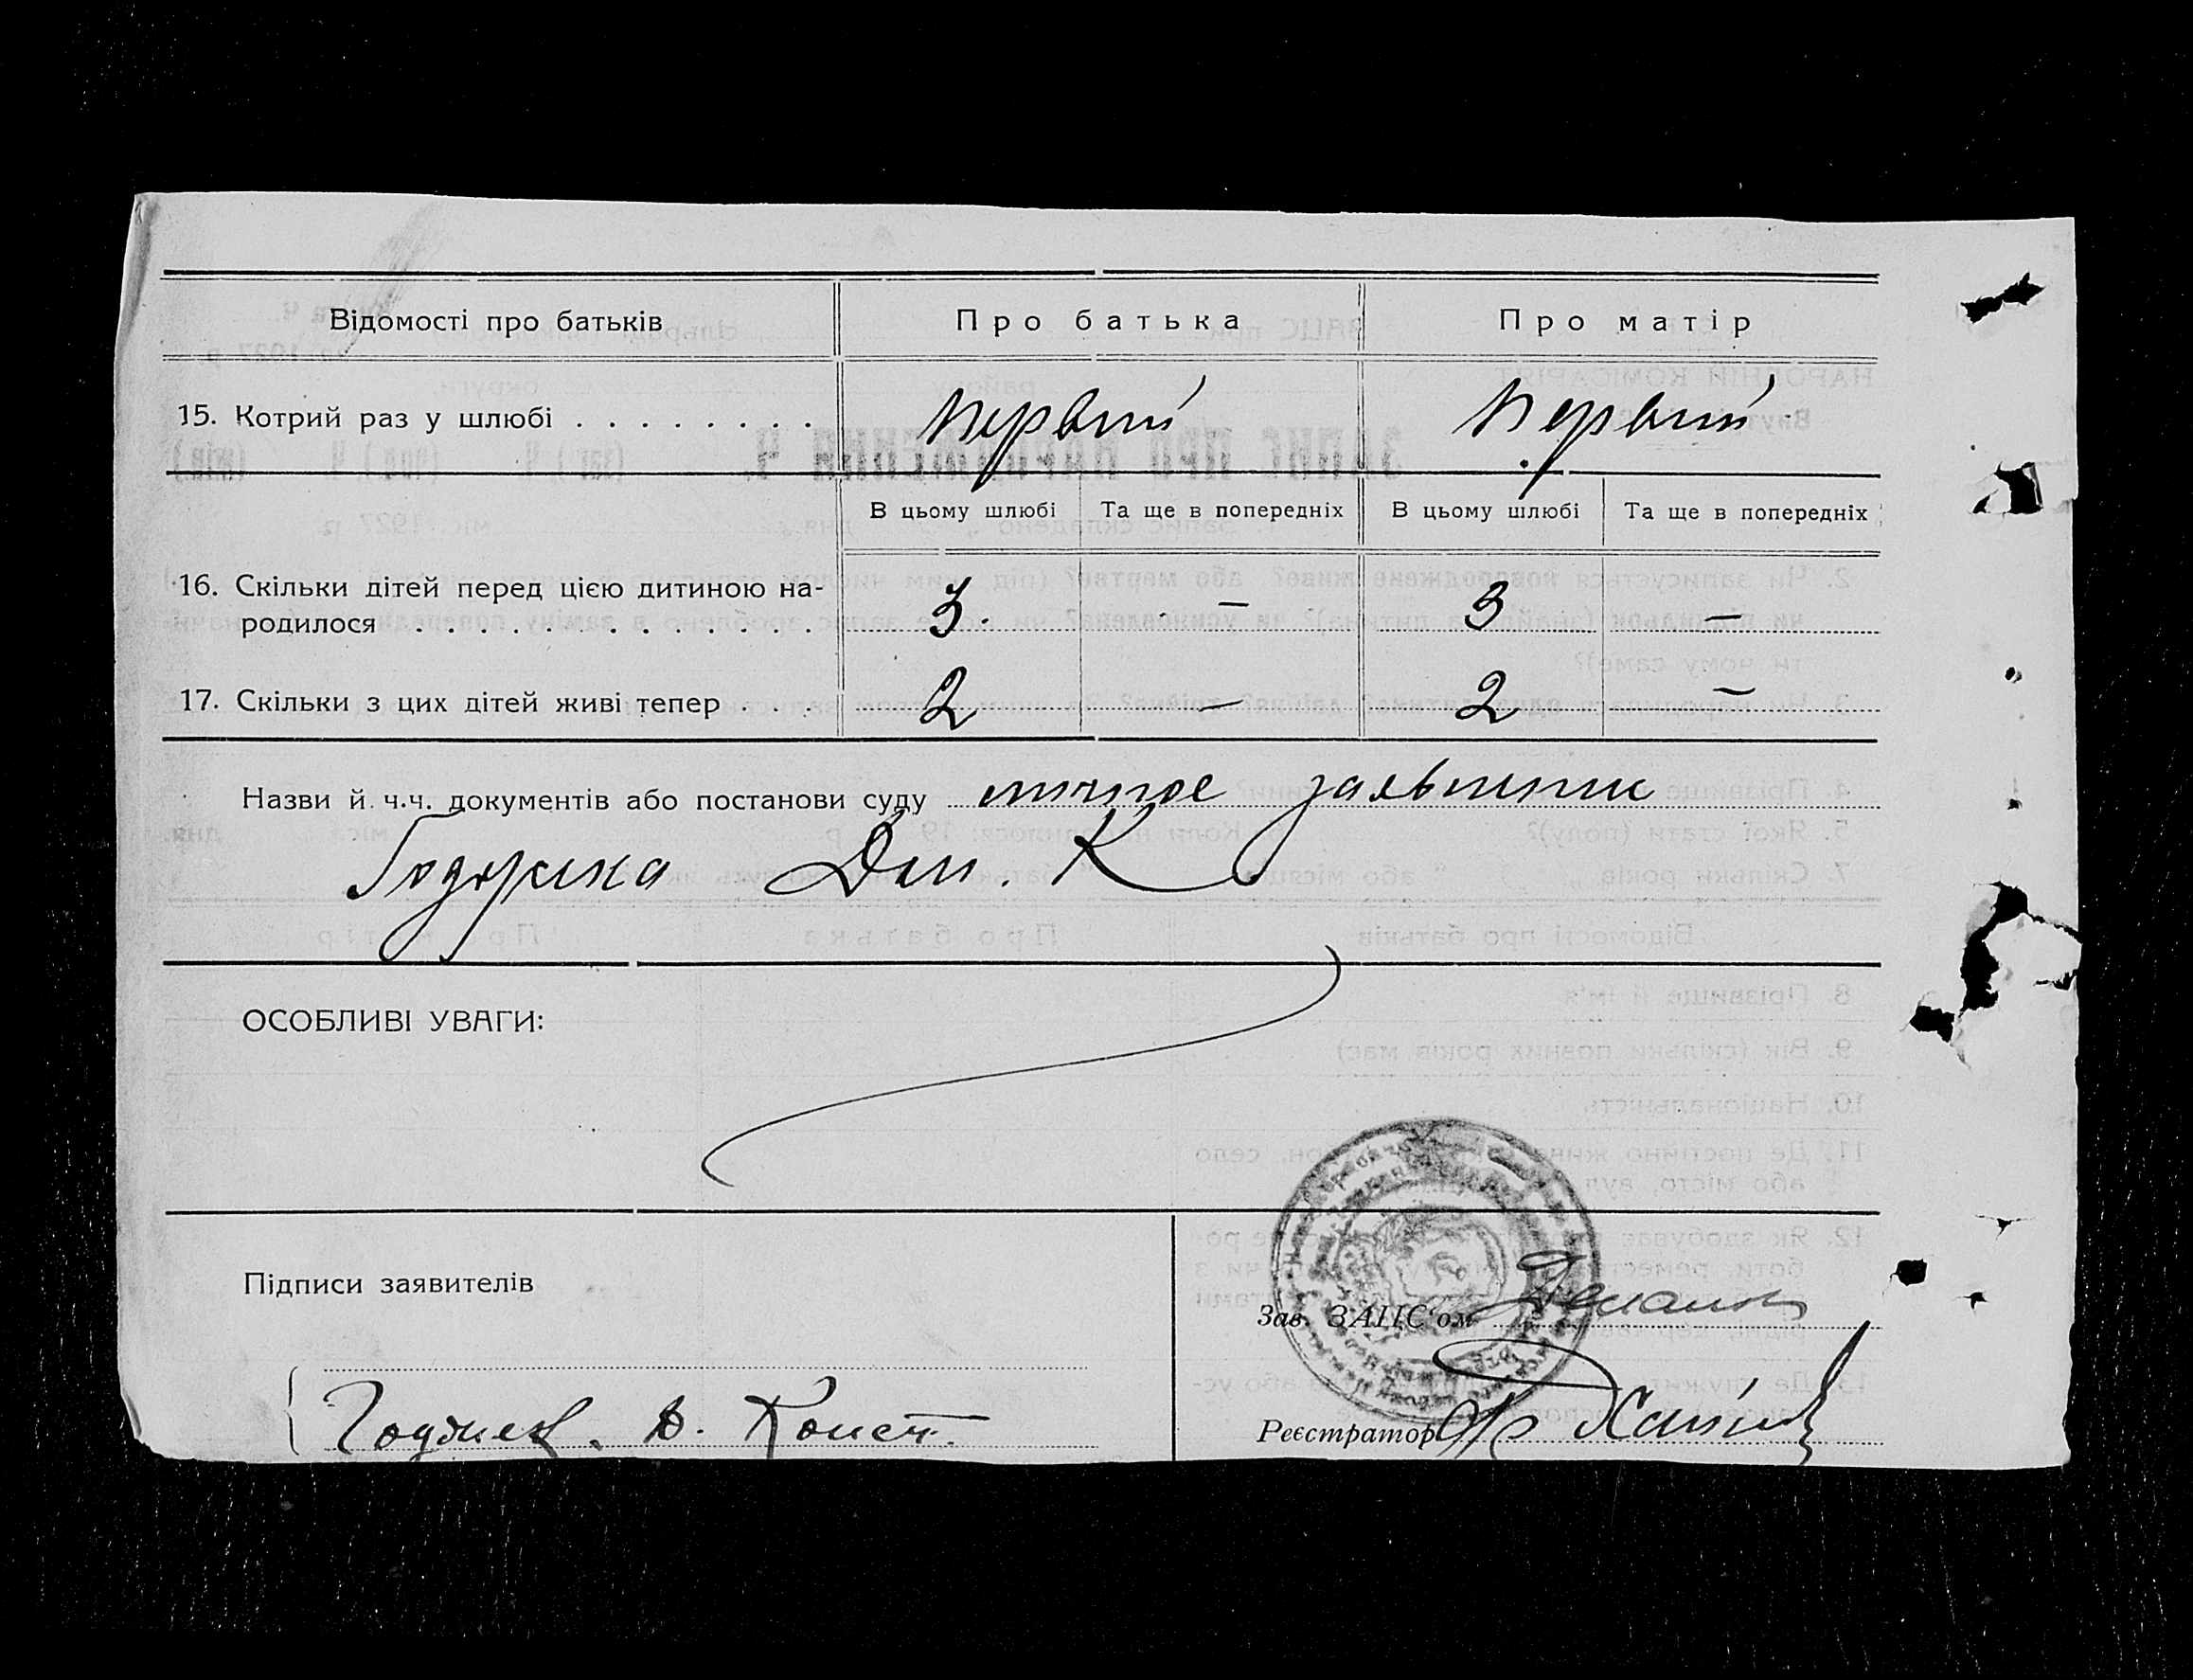 Відомості про батьків Про батька Про матір
15. Котрий раз у шлюбі . . . . . . . . Первый Первый
В цьому шлюбі Та ще в попередніх В цьому шлюбі Та ще в попередніх
16. Скільки дітей перед цією дитиною на-
родилося . . . . . . . . . . . . . . 3. — 3 —
17. Скільки з цих дітей живі тепер . . . 2 — 2 —
Назви й ч.ч. документів або постанови суду личное заявление
Дм. К
ОСОБЛИВІ УВАГИ:
Підписи заявителів
Зав. ЗАПС'ом
Д. Конст.
Реєстратор